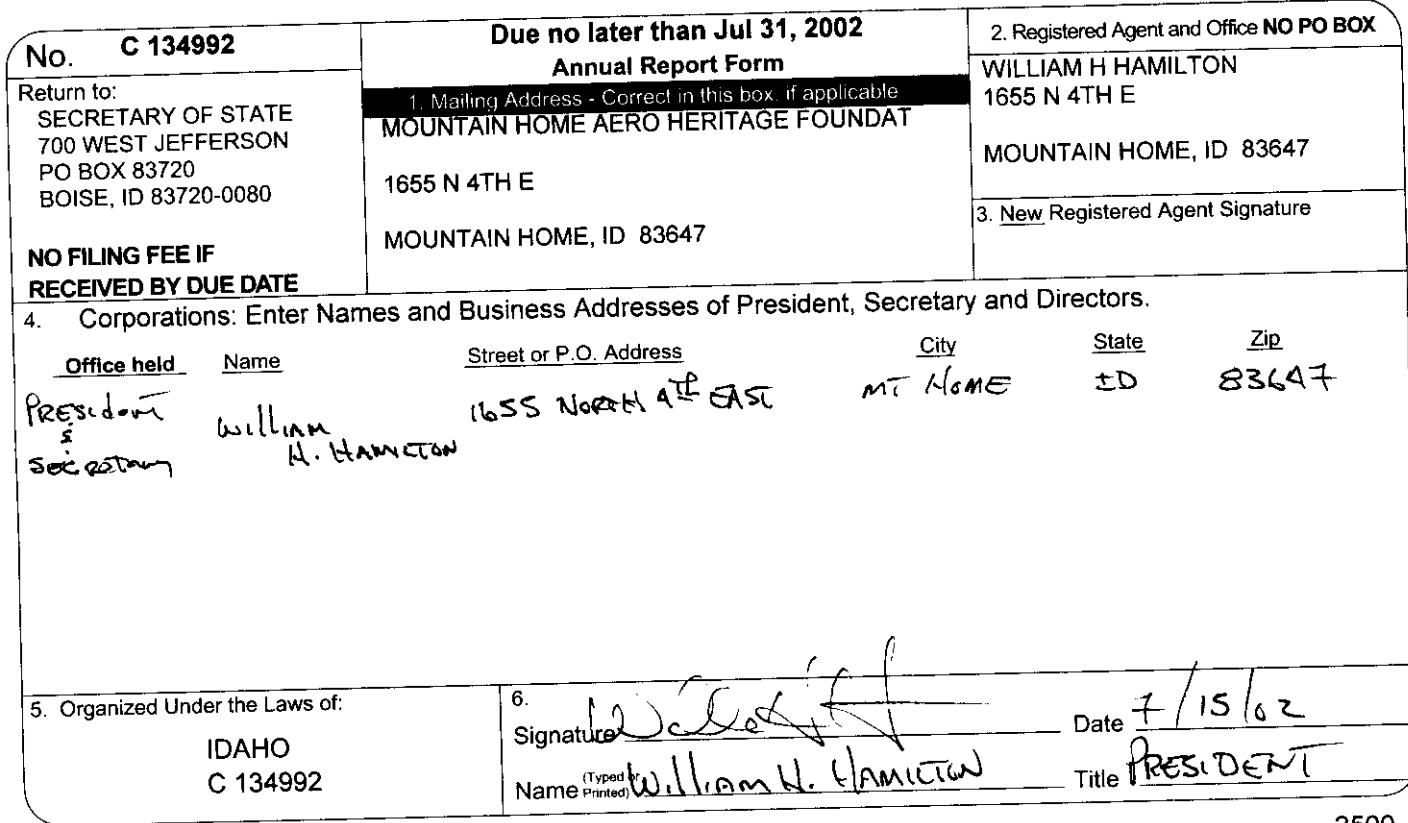 No. C 134992
Return to:
SECRETARY OF STATE
700 WEST JEFFERSON
PO BOX 83720
BOISE, ID 83720-0080
NO FILING FEE IF
RECEIVED BY DUE DATE
Due no later than Jul 31, 2002
Annual Report Form
1. Mailing Address - Correct in this box, if applicable
MOUNTAIN HOME AERO HERITAGE FOUNDAT
1655 N 4TH E
MOUNTAIN HOME, ID 83647
2. Registered Agent and Office NO PO BOX
WILLIAM H HAMILTON
1655 N 4TH E
MOUNTAIN HOME, ID 83647
3. New Registered Agent Signature
4. Corporations: Enter Names and Business Addresses of President, Secretary and Directors.
Office held Name Street or P.O. Address City State Zip
President William 1655 North 4th East MT Home ID 83647
& H. Hamilton
Secretary
5. Organized Under the Laws of:
IDAHO
C 134992
6.
Signature Date 7/15/02
Name (Typed or Printed) William H. Hamilton Title PRESIDENT